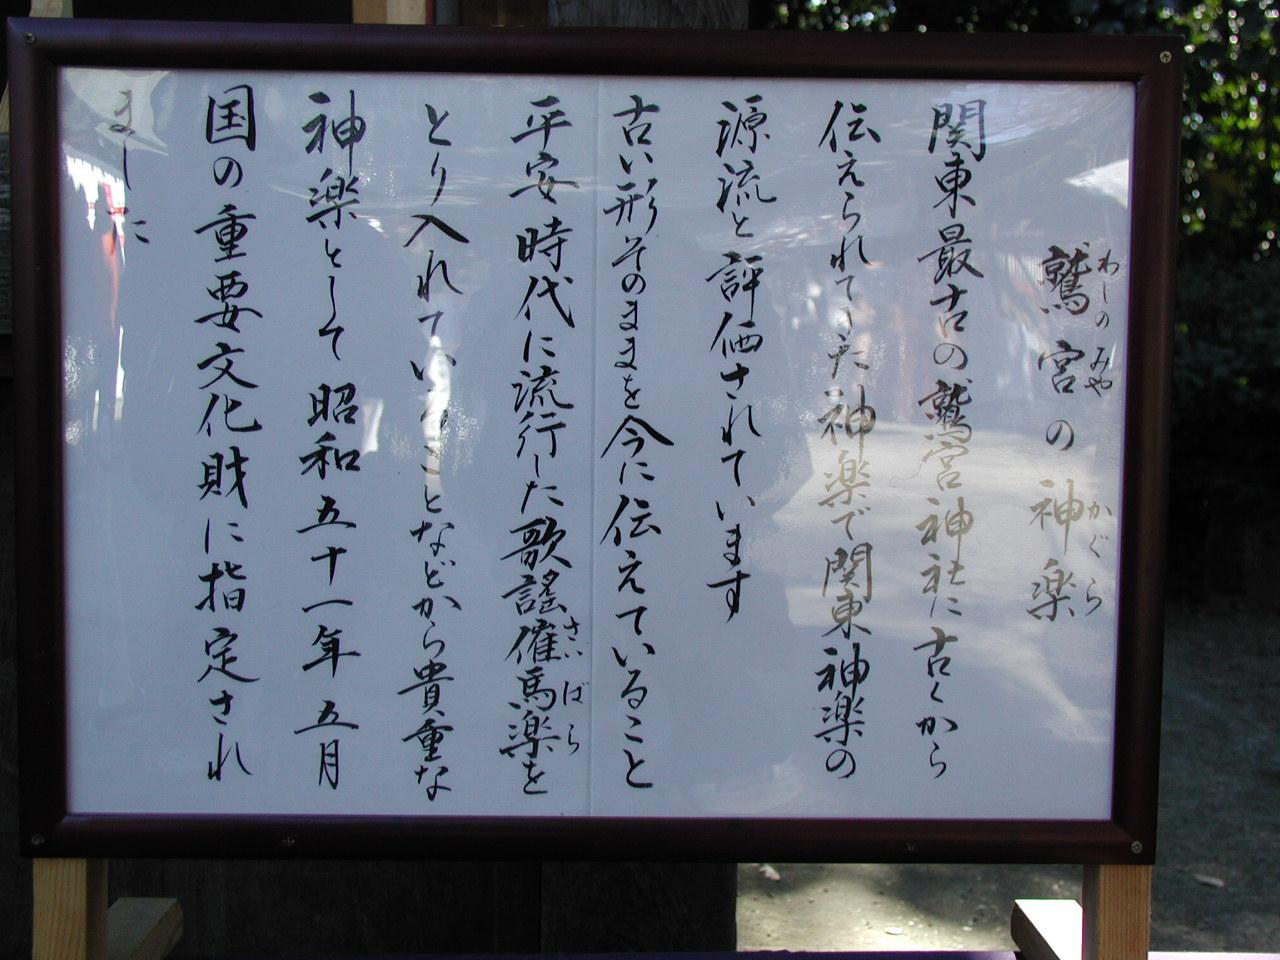 鷲宮の神楽
わしのみや かぐら
関東最古の鷲宮神社に古くから
伝えられてきた神楽で関東神楽の
源流と評価されています
古い形そのままを今に伝えていること
平安時代に流行した歌謡催馬楽を
さいばら
とり入れていることなどから貴重な
神楽として昭和五十一年五月
国の重要文化財に指定され
ました